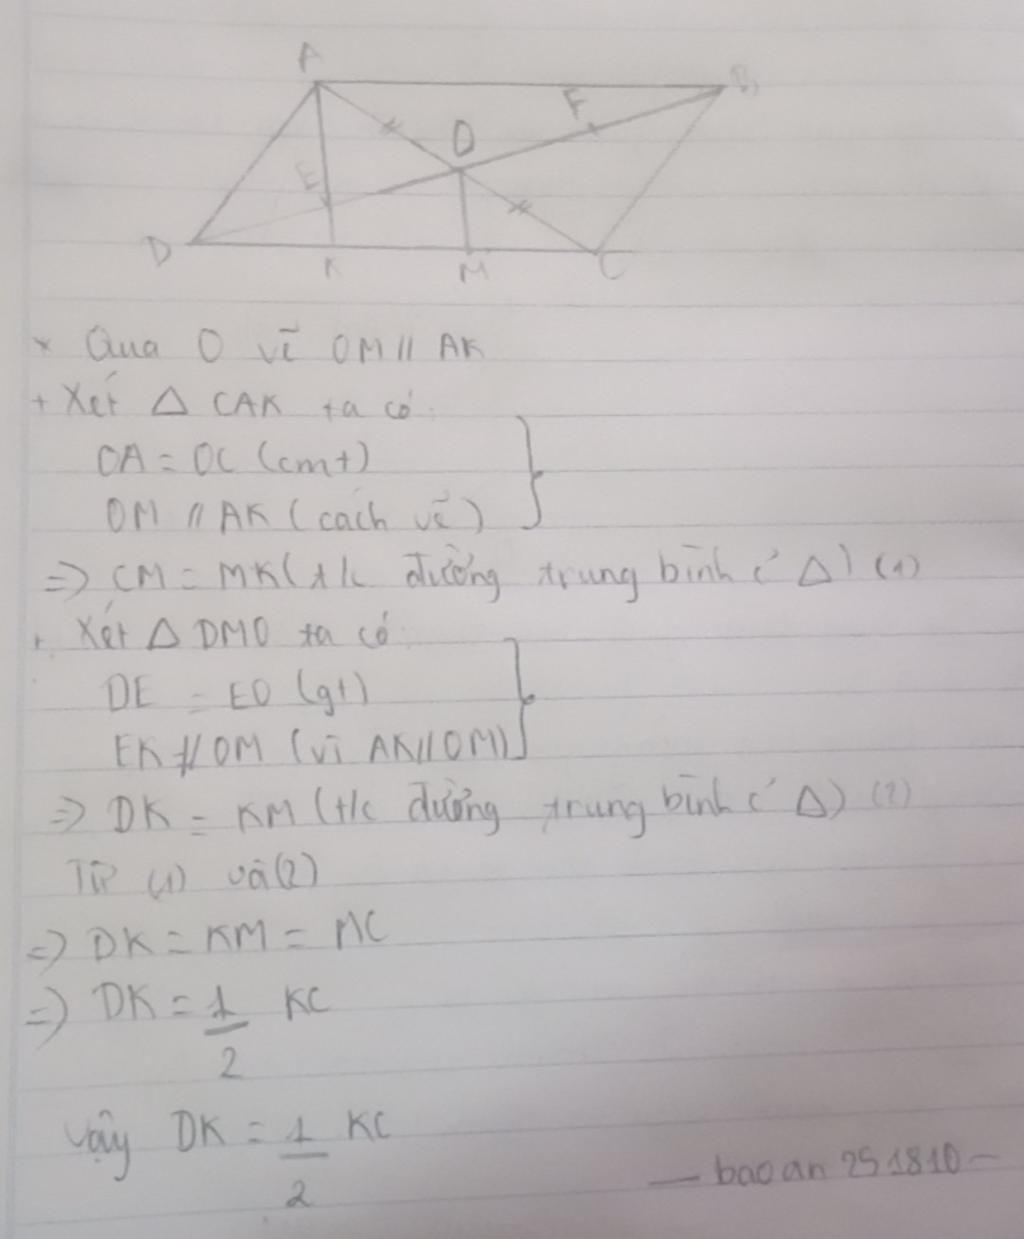 A
B
F
O
E
D
K
M
C
* Qua O vẽ OM // AK
+ Xét Δ CAK ta có:
OA = OC (cmt)
OM // AK (cách vẽ)
=> CM = MK (t/c đường trung bình c' Δ) (1)
+ Xét Δ DMO ta có:
DE = EO (gt)
EK // OM (vì AK // OM)
=> DK = KM (t/c đường trung bình c' Δ) (2)
Từ (1) và (2)
=> DK = KM = MC
=> DK = 1/2 KC
Vậy DK = 1/2 KC
— bao an 251810 —